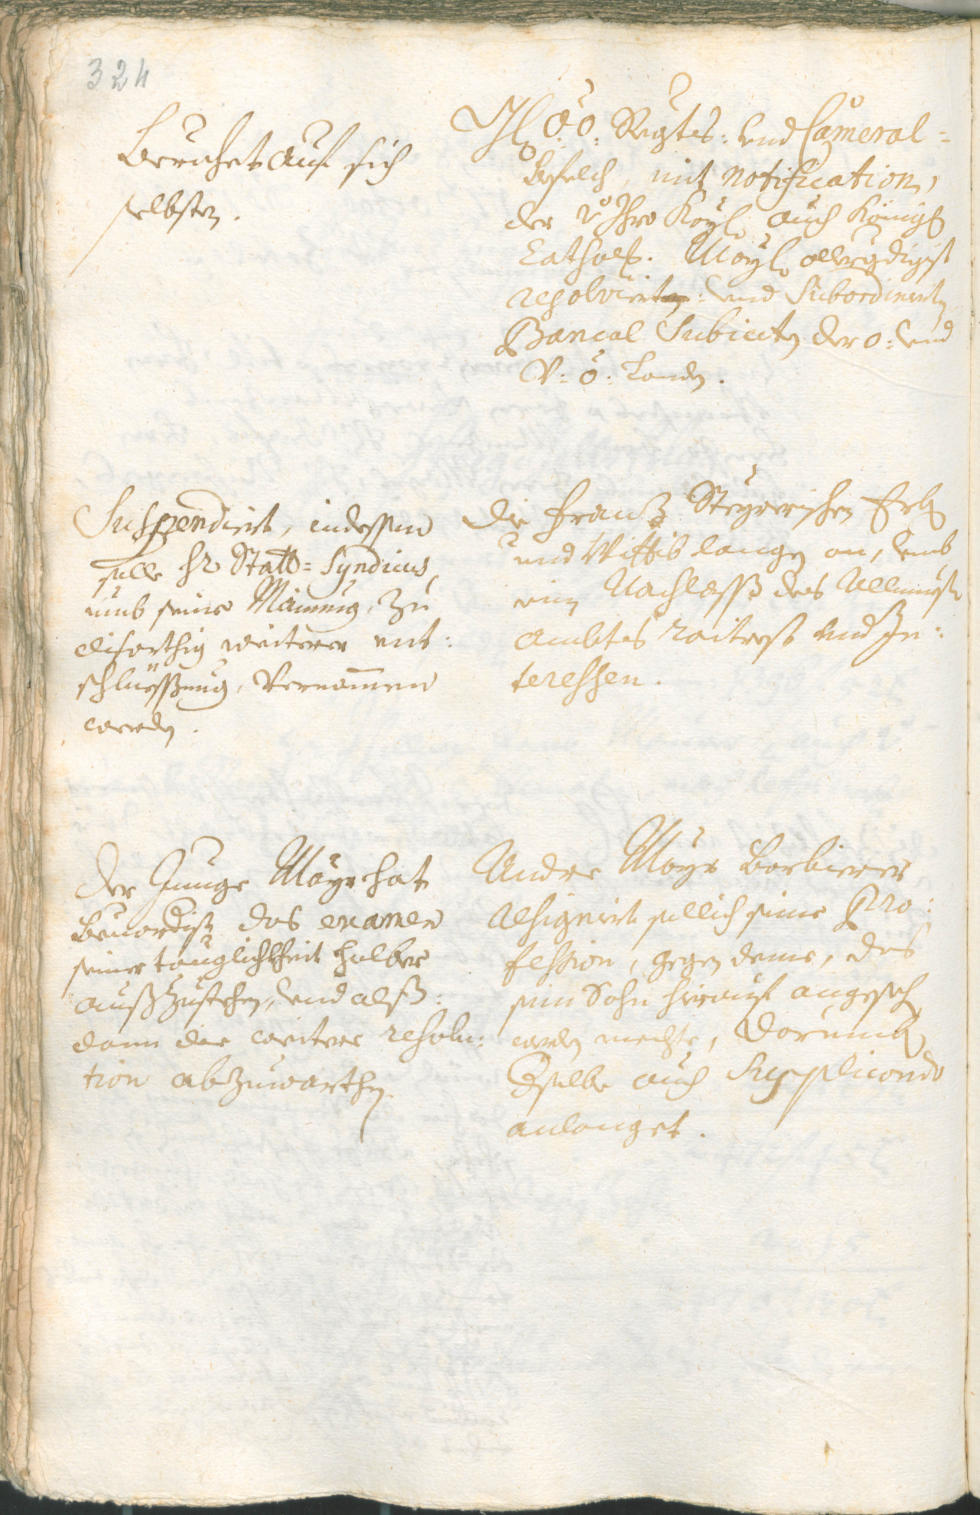 324
Beruehet auf sich
selbsten.
OÖ: Regts: und Cameral-
befelch, mit notification,
der von Ihro Kayl. auch Königl.
Cathol. Mayl. allergdigist
resolvierten: und Subordinirten
Bancal Subiecten der O: und
V: Ö: Landen.
Suspendirt, indessen
solle Hr Statt-Syndicus
umb seine Mainung, zu
disorthig weiterer ent:
schlüessung, Vernommen
werden.
Die Franz Steyrerischen Erben
und Wittib langen an, umb
ein Nachlass des Allmuesen
Ambtes raitrest und In:
teressen.
Der Junge Mayr hat
Bevordist das examen
seiner tauglichkheit halber
ausszustehen, und alss:
dann die weitere resolu:
tion abzuwarthen.
Andre Mayr Barbierer
resignirt seine Pro:
fession, gegen deme, das
sein Sohn hierauf angesechen
werden mechte, darumben
Derselbe auch Supplicando
anlanget.